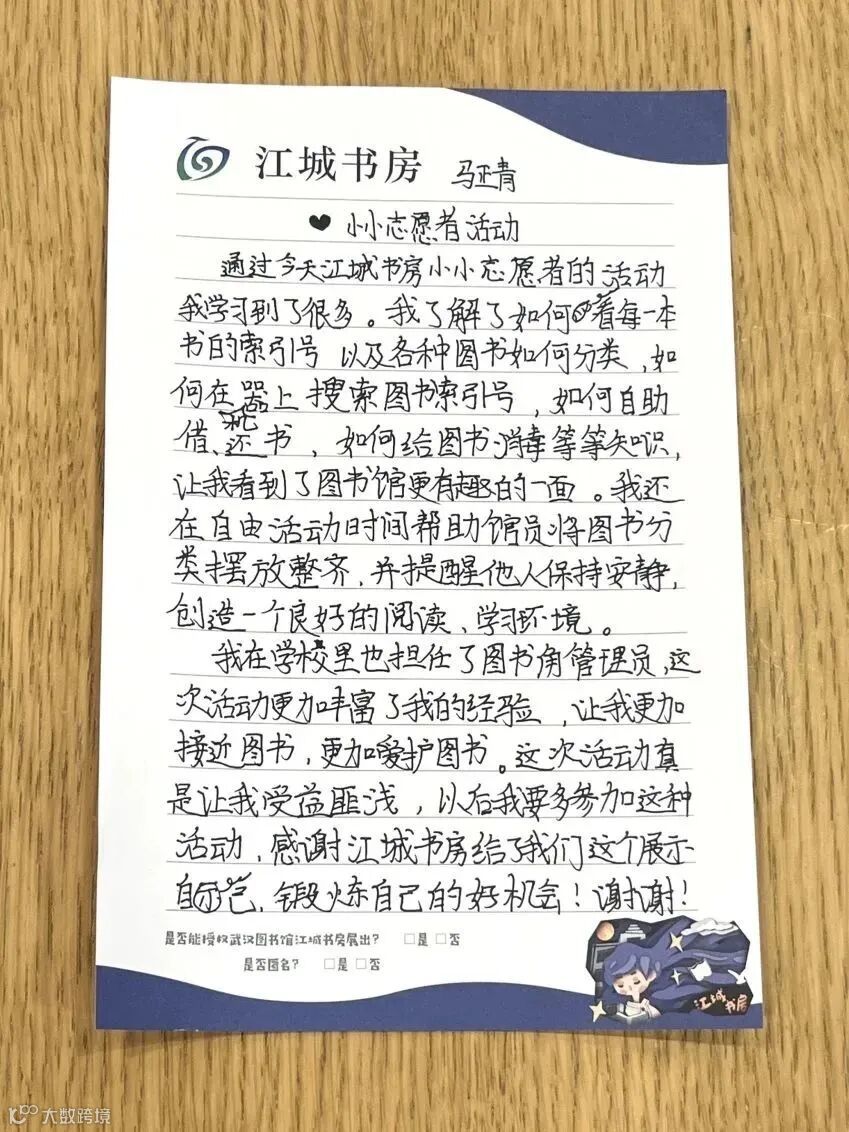 江城书房 马正青
♥ 小小志愿者活动
通过今天江城书房小小志愿者的活动
我学习到了很多。我了解了如何看每一本
书的索引号 以及各种图书如何分类,如
何在机器上搜索图书索引号,如何自助
借、还书,如何给图书消毒等等知识,
让我看到了图书馆更有趣的一面。我还
在自由活动时间帮助馆员将图书分
类摆放整齐,并提醒他人保持安静,
创造一个良好的阅读、学习环境。
我在学校里也担任了图书角管理员,这
次活动更加丰富了我的经验,让我更加
接近图书,更加爱护图书。这次活动真
是让我受益匪浅,以后我要多参加这种
活动,感谢江城书房给了我们这个展示
自己,锻炼自己的好机会!谢谢!
是否能授权武汉图书馆江城书房展出? □是 □否
是否匿名? □是 □否
江城书房
大数跨境